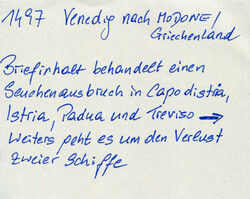 1497 Venedig nach MODONE/
Griechenland
Briefinhalt behandelt einen
Seuchenausbruch in Capodistria,
Istria, Padua und Treviso →
Weiters geht es um den Verlust
zweier Schiffe